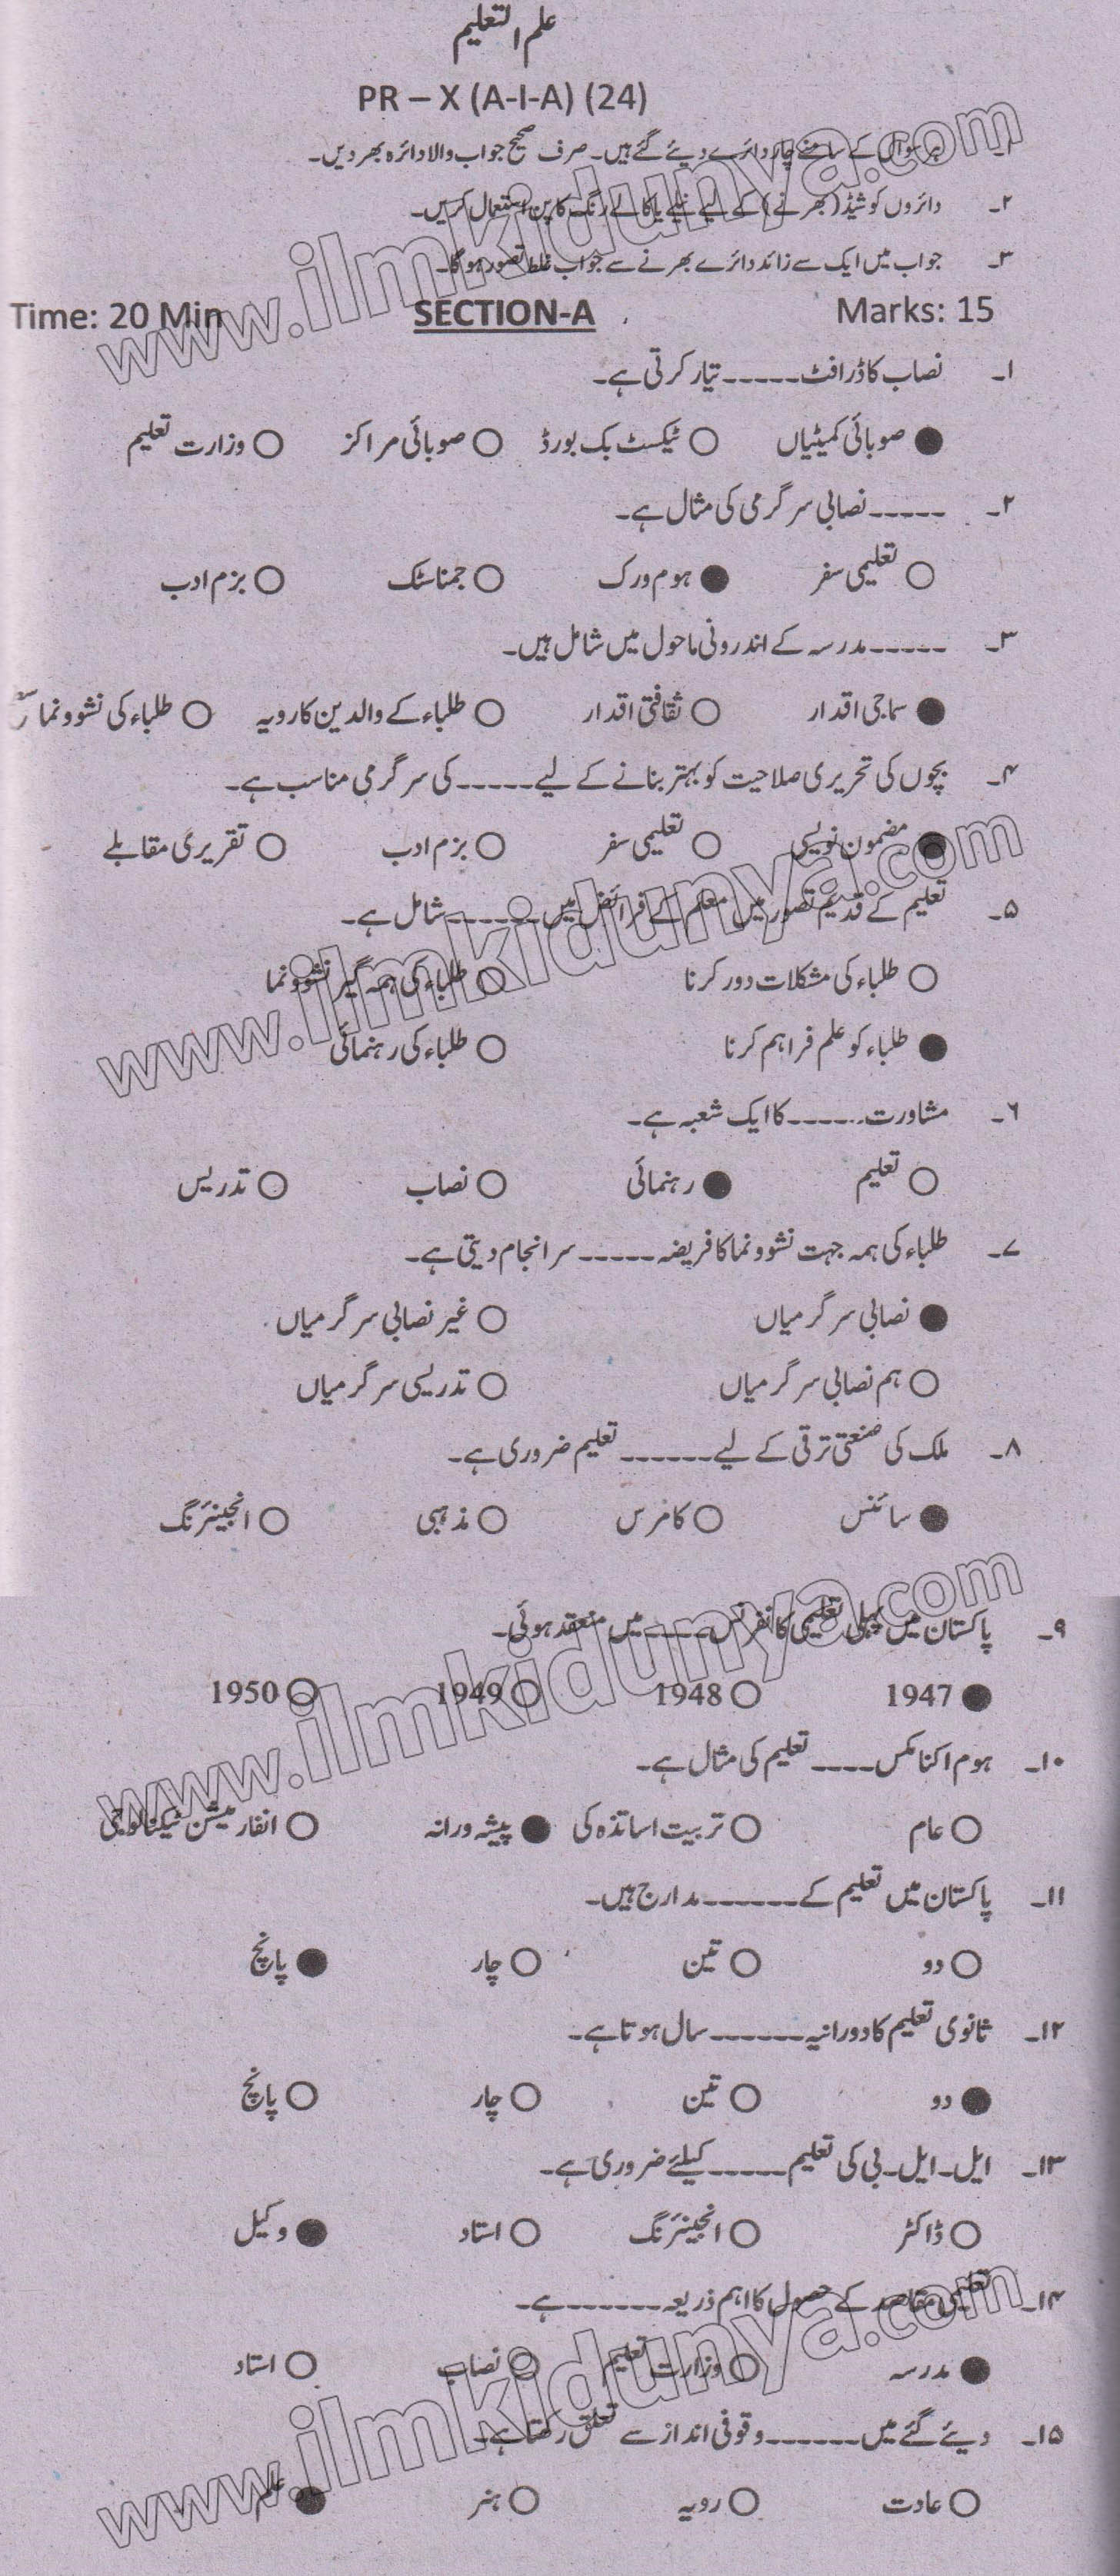 علم التعلیم
PR – X (A-I-A) (24)
۱۔ ہر سوال کے سامنے چار دائرے دیئے گئے ہیں۔ صرف صحیح جواب والا دائرہ بھر دیں۔
۲۔ دائروں کو شیڈ (بھرنے) کے لیے نیلے یا کالے رنگ کا پن استعمال کریں۔
۳۔ جواب میں ایک سے زائد دائرے بھرنے سے جواب غلط تصور ہوگا۔
Time: 20 Min SECTION-A Marks: 15
۱۔ نصاب کا ڈرافٹ ----- تیار کرتی ہے۔
● صوبائی کمیٹیاں ○ ٹیکسٹ بک بورڈ ○ صوبائی مراکز ○ وزارت تعلیم
۲۔ ----- نصابی سرگرمی کی مثال ہے۔
○ تعلیمی سفر ● ہوم ورک ○ جمناسٹک ○ بزم ادب
۳۔ ----- مدرسہ کے اندرونی ماحول میں شامل ہیں۔
● سماجی اقدار ○ ثقافتی اقدار ○ طلباء کے والدین کا رویہ ○ طلباء کی نشوونما
۴۔ بچوں کی تحریری صلاحیت کو بہتر بنانے کے لیے ----- کی سرگرمی مناسب ہے۔
● مضمون نویسی ○ تعلیمی سفر ○ بزم ادب ○ تقریری مقابلے
۵۔ تعلیم کے قدیم تصور میں معلم کے فرائض میں ------ شامل ہے۔
○ طلباء کی مشکلات دور کرنا ○ طلباء کی ہمہ گیر نشوونما
● طلباء کو علم فراہم کرنا ○ طلباء کی رہنمائی
۶۔ مشاورت ----- کا ایک شعبہ ہے۔
○ تعلیم ● رہنمائی ○ نصاب ○ تدریس
۷۔ طلباء کی ہمہ جہت نشوونما کا فریضہ ----- سرانجام دیتی ہے۔
● نصابی سرگرمیاں ○ غیر نصابی سرگرمیاں
○ ہم نصابی سرگرمیاں ○ تدریسی سرگرمیاں
۸۔ ملک کی صنعتی ترقی کے لیے ------ تعلیم ضروری ہے۔
● سائنس ○ کامرس ○ مذہبی ○ انجینئرنگ
۹۔ پاکستان میں پہلی تعلیمی کانفرنس ----- میں منعقد ہوئی۔
● 1947 ○ 1948 ○ 1949 ○ 1950
۱۰۔ ہوم اکنامکس ---- تعلیم کی مثال ہے۔
○ عام ○ تربیت اساتذہ کی ● پیشہ ورانہ ○ انفارمیشن ٹیکنالوجی
۱۱۔ پاکستان میں تعلیم کے ------ مدارج ہیں۔
○ دو ○ تین ○ چار ● پانچ
۱۲۔ ثانوی تعلیم کا دورانیہ ------ سال ہوتا ہے۔
● دو ○ تین ○ چار ○ پانچ
۱۳۔ ایل۔ ایل۔ بی کی تعلیم ----- کیلئے ضروری ہے۔
○ ڈاکٹر ○ انجینئرنگ ○ استاد ● وکیل
۱۴۔ تعلیمی مقاصد کے حصول کا اہم ذریعہ ------ ہے۔
● مدرسہ ○ وزارت تعلیم ○ نصاب ○ استاد
۱۵۔ دیئے گئے میں ------ وقوفی انداز سے تعلق رکھتا ہے۔
○ عادت ○ رویہ ○ ہنر ● علم
www.ilmkidunya.com
www.ilmkidunya.com
www.ilmkidunya.com
www.ilmkidunya.com